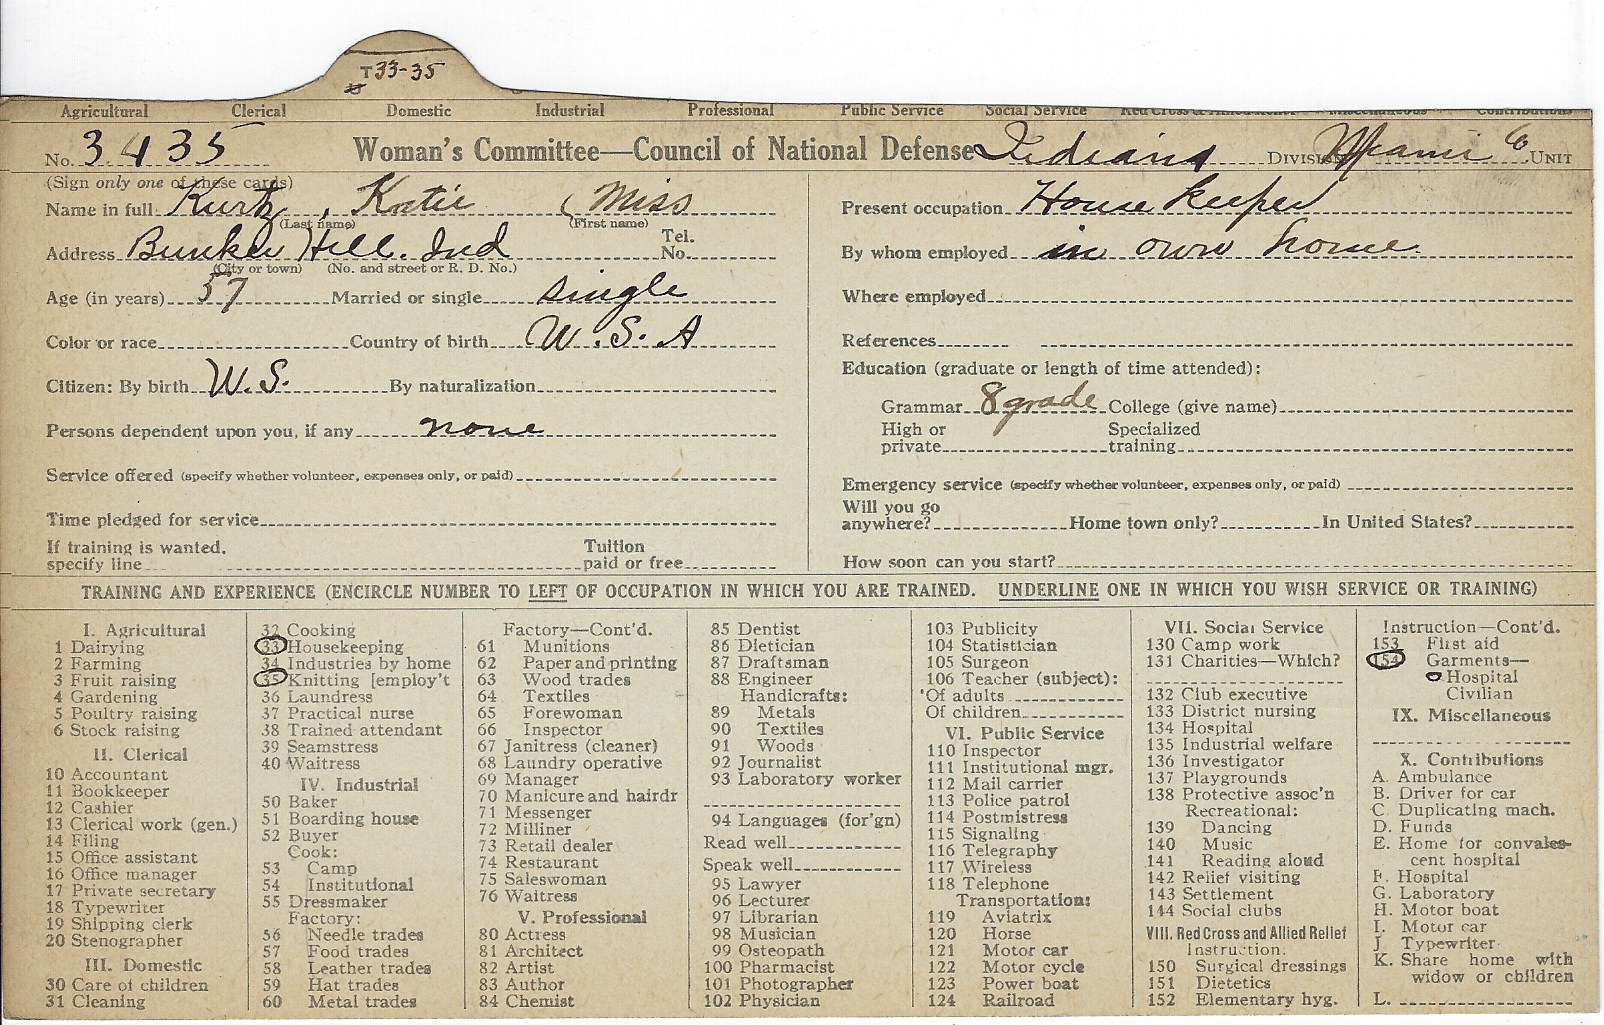 T 33-35
Agricultural Clerical Domestic Industrial Professional Public Service Social Service Red Cross & Allied Relief Miscellaneous Contributions
No. 3435 Woman's Committee—Council of National Defense Indiana DIVISION Miami Co UNIT
(Sign only one of these cards)
Name in full Kurtz, Katie (Miss
(Last name) (First name)
Address Bunker Hill. Ind Tel. No.
(City or town) (No. and street or R. D. No.)
Age (in years) 57 Married or single single
Color or race Country of birth U.S.A
Citizen: By birth U.S. By naturalization
Persons dependent upon you, if any none
Service offered (specify whether volunteer, expenses only, or paid)
Time pledged for service
If training is wanted, specify line Tuition paid or free
Present occupation House keeper
By whom employed in own home.
Where employed
References
Education (graduate or length of time attended):
Grammar 8 grade College (give name)
High or private Specialized training
Emergency service (specify whether volunteer, expenses only, or paid)
Will you go anywhere? Home town only? In United States?
How soon can you start?
TRAINING AND EXPERIENCE (ENCIRCLE NUMBER TO LEFT OF OCCUPATION IN WHICH YOU ARE TRAINED. UNDERLINE ONE IN WHICH YOU WISH SERVICE OR TRAINING)
I. Agricultural
1 Dairying
2 Farming
3 Fruit raising
4 Gardening
5 Poultry raising
6 Stock raising
II. Clerical
10 Accountant
11 Bookkeeper
12 Cashier
13 Clerical work (gen.)
14 Filing
15 Office assistant
16 Office manager
17 Private secretary
18 Typewriter
19 Shipping clerk
20 Stenographer
III. Domestic
30 Care of children
31 Cleaning
32 Cooking
33 Housekeeping
34 Industries by home
35 Knitting [employ't
36 Laundress
37 Practical nurse
38 Trained attendant
39 Seamstress
40 Waitress
IV. Industrial
50 Baker
51 Boarding house
52 Buyer
Cook:
53 Camp
54 Institutional
55 Dressmaker
Factory:
56 Needle trades
57 Food trades
58 Leather trades
59 Hat trades
60 Metal trades
Factory—Cont'd.
61 Munitions
62 Paper and printing
63 Wood trades
64 Textiles
65 Forewoman
66 Inspector
67 Janitress (cleaner)
68 Laundry operative
69 Manager
70 Manicure and hairdr
71 Messenger
72 Milliner
73 Retail dealer
74 Restaurant
75 Saleswoman
76 Waitress
V. Professional
80 Actress
81 Architect
82 Artist
83 Author
84 Chemist
85 Dentist
86 Dietician
87 Draftsman
88 Engineer
Handicrafts:
89 Metals
90 Textiles
91 Woods
92 Journalist
93 Laboratory worker
94 Languages (for'gn)
Read well
Speak well
95 Lawyer
96 Lecturer
97 Librarian
98 Musician
99 Osteopath
100 Pharmacist
101 Photographer
102 Physician
103 Publicity
104 Statistician
105 Surgeon
106 Teacher (subject):
Of adults
Of children
VI. Public Service
110 Inspector
111 Institutional mgr.
112 Mail carrier
113 Police patrol
114 Postmistress
115 Signaling
116 Telegraphy
117 Wireless
118 Telephone
Transportation:
119 Aviatrix
120 Horse
121 Motor car
122 Motor cycle
123 Power boat
124 Railroad
VII. Social Service
130 Camp work
131 Charities—Which?
132 Club executive
133 District nursing
134 Hospital
135 Industrial welfare
136 Investigator
137 Playgrounds
138 Protective assoc'n
Recreational:
139 Dancing
140 Music
141 Reading aloud
142 Relief visiting
143 Settlement
144 Social clubs
VIII. Red Cross and Allied Relief
Instruction:
150 Surgical dressings
151 Dietetics
152 Elementary hyg.
Instruction—Cont'd.
153 First aid
154 Garments—
Hospital
Civilian
IX. Miscellaneous
X. Contributions
A. Ambulance
B. Driver for car
C. Duplicating mach.
D. Funds
E. Home for convales-
cent hospital
F. Hospital
G. Laboratory
H. Motor boat
I. Motor car
J. Typewriter
K. Share home with
widow or children
L.